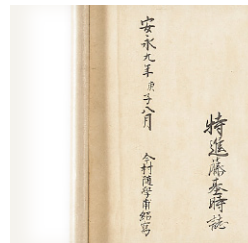 特進藤基時誌
安永九年庚子八月
今村随學甫紹寫